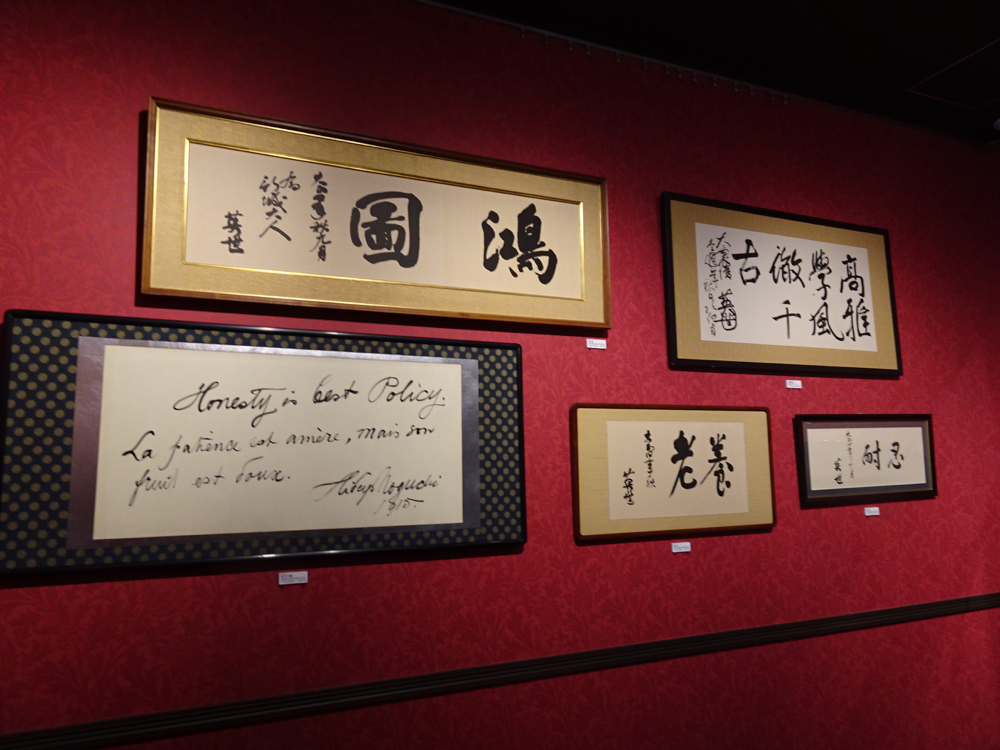 鴻圖
大正四年秋九月
為
英世
高雅
學風
徹千
古
英世
Honesty is best Policy.
La patience est amère, mais son
fruit est doux.
Hideyo Noguchi
1915.
養老
英世
忍耐
英世